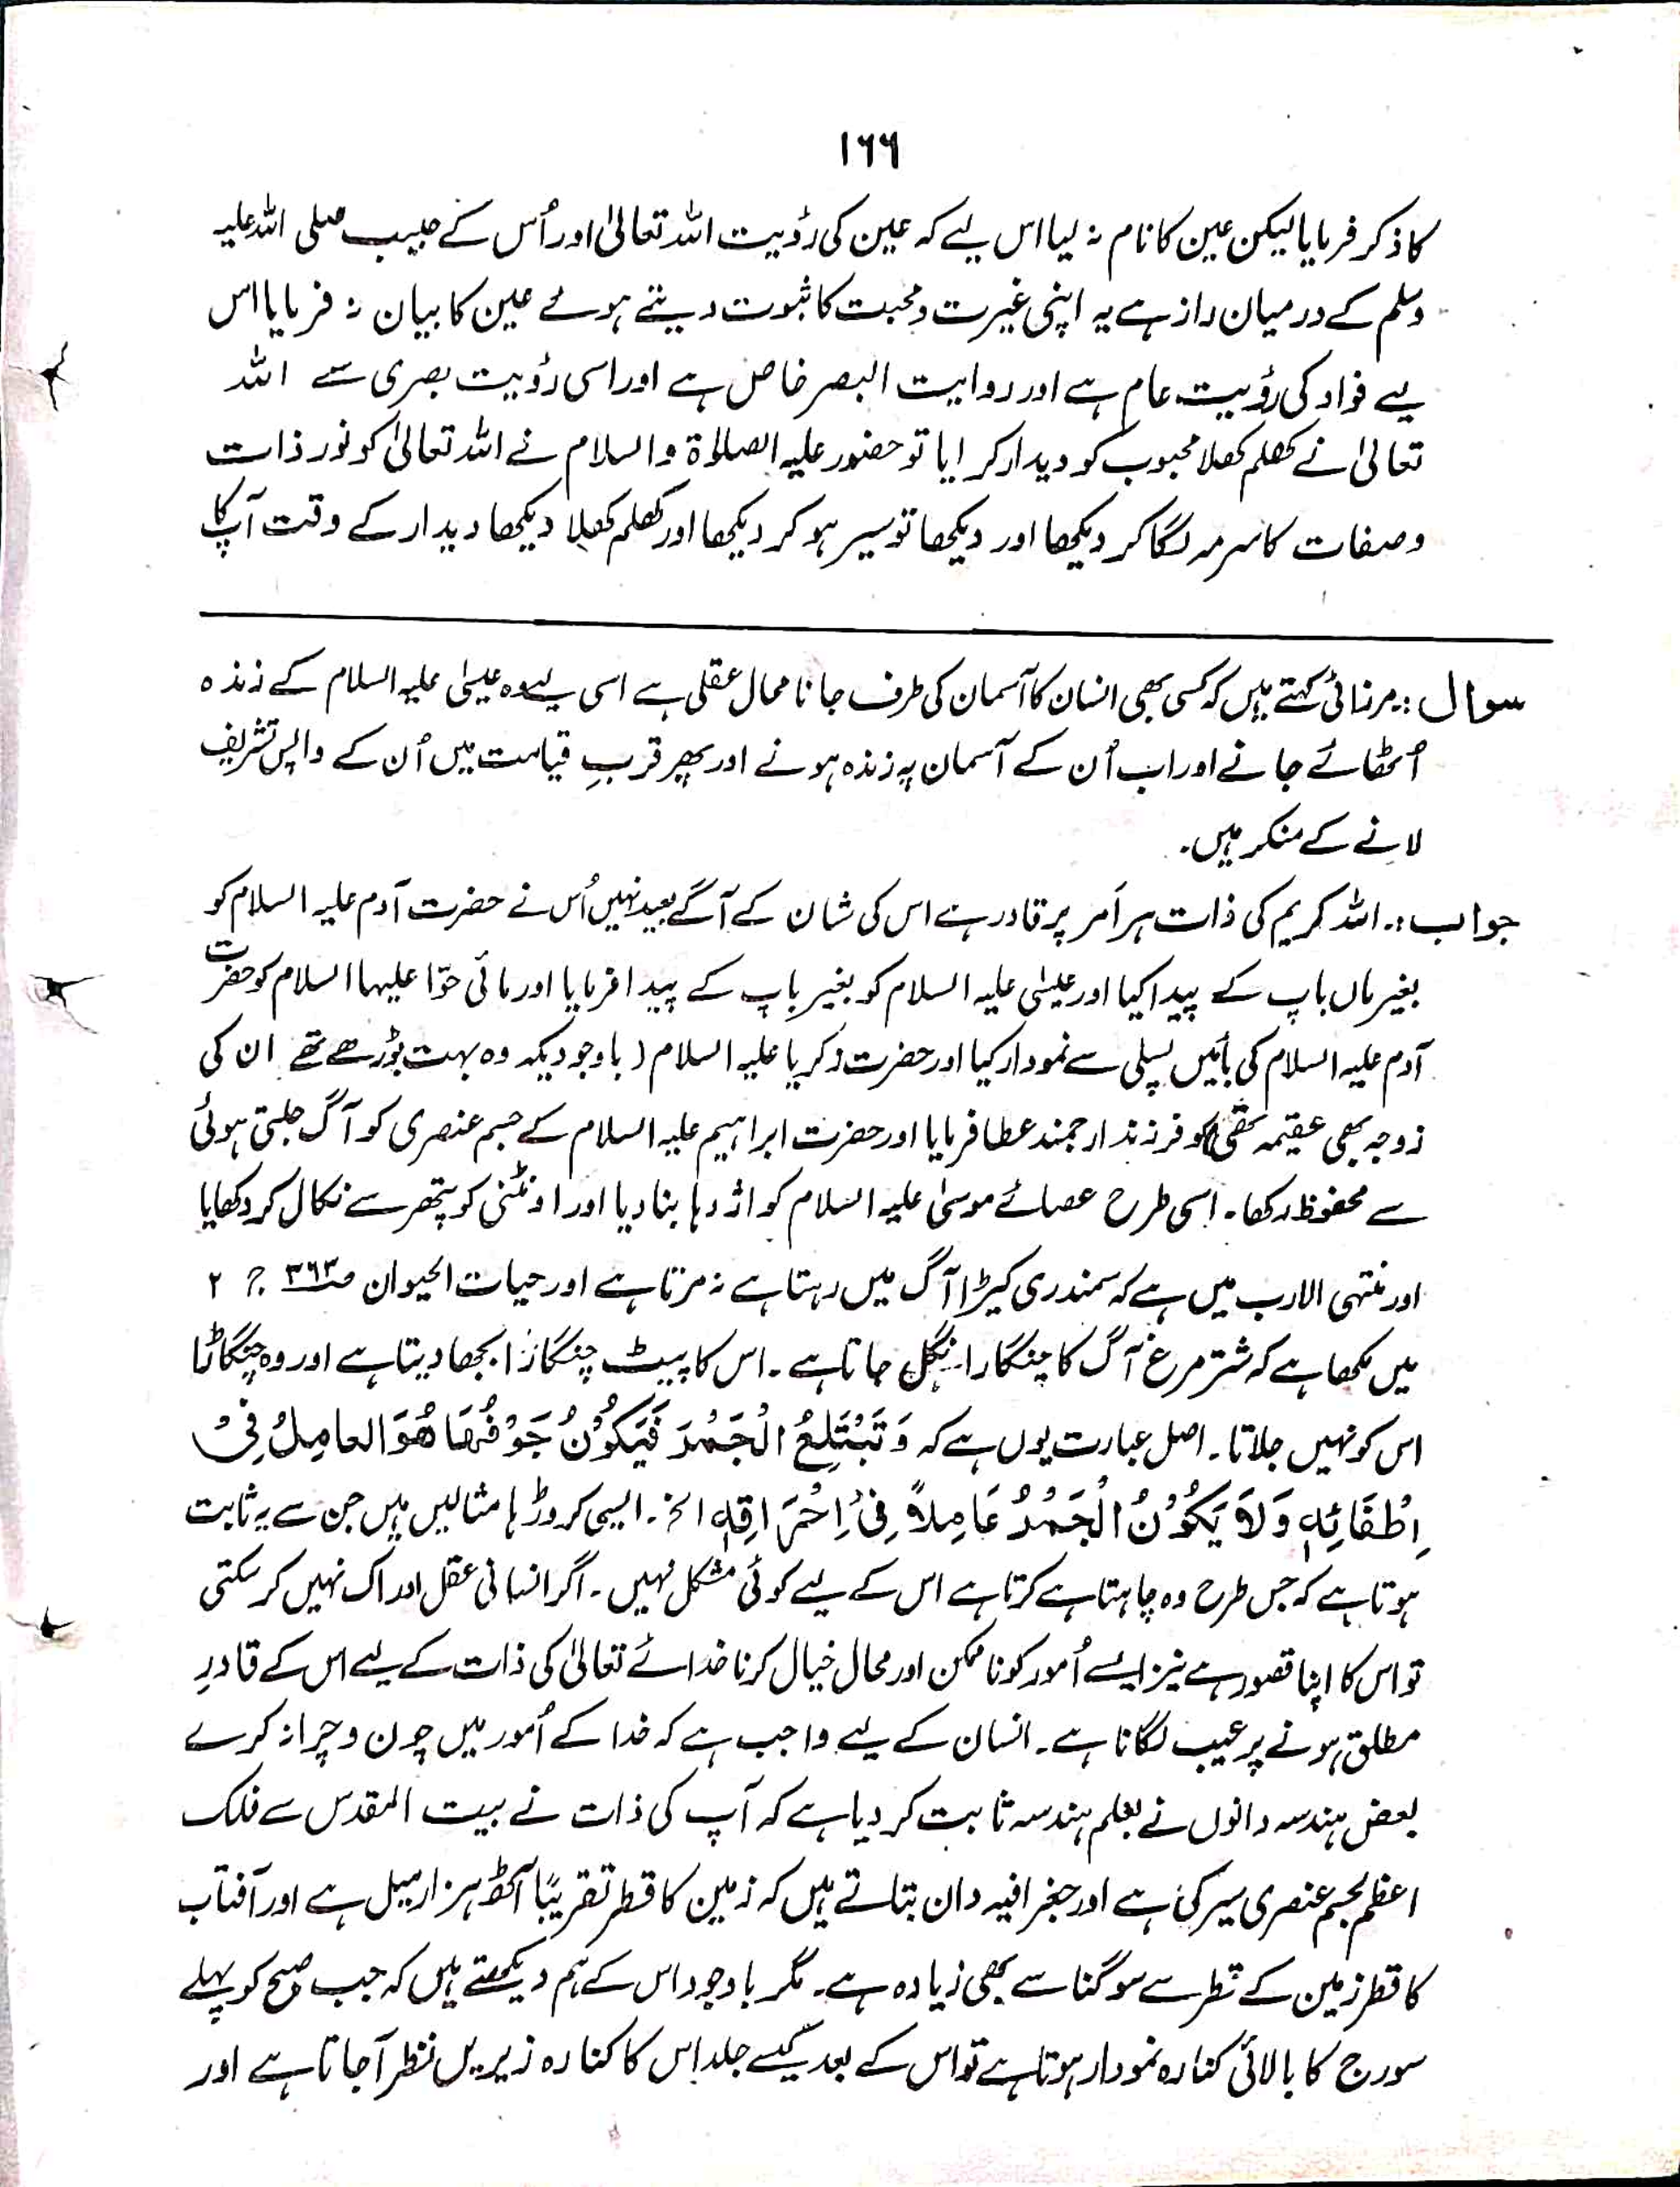 ۱۶۶
کا ذکر فرمایا لیکن عین کا نام نہ لیا اس لیے کہ عین کی رؤیت اللہ تعالیٰ اور اُس کے حبیب صلی اللہ علیہ
وسلم کے درمیان راز ہے یہ اپنی غیرت و محبت کا ثبوت دیتے ہوئے عین کا بیان نہ فرمایا اس
لیے فواد کی رؤیت عام ہے اور روایت البصر خاص ہے اور اسی رؤیت بصری سے اللہ
تعالیٰ نے کھلم کھلا محبوب کو دیدار کرایا تو حضور علیہ الصلوٰۃ والسلام نے اللہ تعالیٰ کو نور ذات
وصفات کا سرمہ لگا کر دیکھا اور دیکھا تو سیر ہو کر دیکھا اور کھلم کھلا دیکھا دیدار کے وقت آپ کا
سوال :۔ مرزائی کہتے ہیں کہ کسی بھی انسان کا آسمان کی طرف جانا محال عقلی ہے اسی لیے وہ عیسیٰ علیہ السلام کے زندہ
اُٹھائے جانے اور اب اُن کے آسمان پہ زندہ ہونے اور پھر قربِ قیامت میں اُن کے واپس تشریف
لانے کے منکر ہیں۔
جواب :۔ اللہ کریم کی ذات ہر اَمر پر قادر ہے اس کی شان کے آگے بعید نہیں اُس نے حضرت آدم علیہ السلام کو
بغیر ماں باپ کے پیدا کیا اور عیسیٰ علیہ السلام کو بغیر باپ کے پیدا فرمایا اور مائی حوّا علیہا السلام کو حضرت
آدم علیہ السلام کی بائیں پسلی سے نمودار کیا اور حضرت زکریا علیہ السلام (باوجودیکہ وہ بہت بوڑھے تھے ان کی
زوجہ بھی عقیمہ تھی) کو فرزند ارجمند عطا فرمایا اور حضرت ابراہیم علیہ السلام کے جسم عنصری کو آگ جلتی ہوئی
سے محفوظ رکھا۔ اسی طرح عصائے موسیٰ علیہ السلام کو اژدہا بنا دیا اور اونٹنی کو پتھر سے نکال کر دکھایا
اور منتہی الارب میں ہے کہ سمندری کیڑا آگ میں رہتا ہے نہ مرتا ہے اور حیات الحیوان ص ۳۶۳ ج ۲
میں لکھا ہے کہ شتر مرغ آگ کا چنگارا نگل جاتا ہے۔ اس کا پیٹ چنگارا بجھا دیتا ہے اور وہ چنگاڑا
اس کو نہیں جلاتا۔ اصل عبارت یوں ہے کہ وَ تَبْتَلِعُ الْجَمْرَ فَیَکُوْنُ جَوْفُہَا ھُوَ العامِلُ فِیْ
اِطْفَائِہٖ وَلَا یَکُوْنُ الْجَمْرُ عَامِلاً فِیْ اِحْرَاقِہٖ الخ۔ ایسی کروڑ ہا مثالیں ہیں جن سے یہ ثابت
ہوتا ہے کہ جس طرح وہ چاہتا ہے کرتا ہے اس کے لیے کوئی مشکل نہیں۔ اگر انسانی عقل ادراک نہیں کر سکتی
تو اس کا اپنا قصور ہے نیز ایسے اُمور کو ناممکن اور محال خیال کرنا خدائے تعالیٰ کی ذات کے لیے اس کے قادرِ
مطلق ہونے پر عیب لگانا ہے۔ انسان کے لیے واجب ہے کہ خدا کے اُمور میں چون و چرا نہ کرے
بعض ہندسہ دانوں نے بعلم ہندسہ ثابت کر دیا ہے کہ آپ کی ذات نے بیت المقدس سے فلک
اعظم بجسم عنصری سیر کی ہے اور جغرافیہ دان بتاتے ہیں کہ زمین کا قطر تقریبًا آٹھ ہزار میل ہے اور آفتاب
کا قطر زمین کے قطر سے سو گنا سے بھی زیادہ ہے۔ مگر باوجود اس کے ہم دیکھتے ہیں کہ جب صبح کو پہلے
سورج کا بالائی کنارہ نمودار ہوتا ہے تو اس کے بعد کیسے جلد اِس کا کنارہ زیریں نظر آجاتا ہے اور